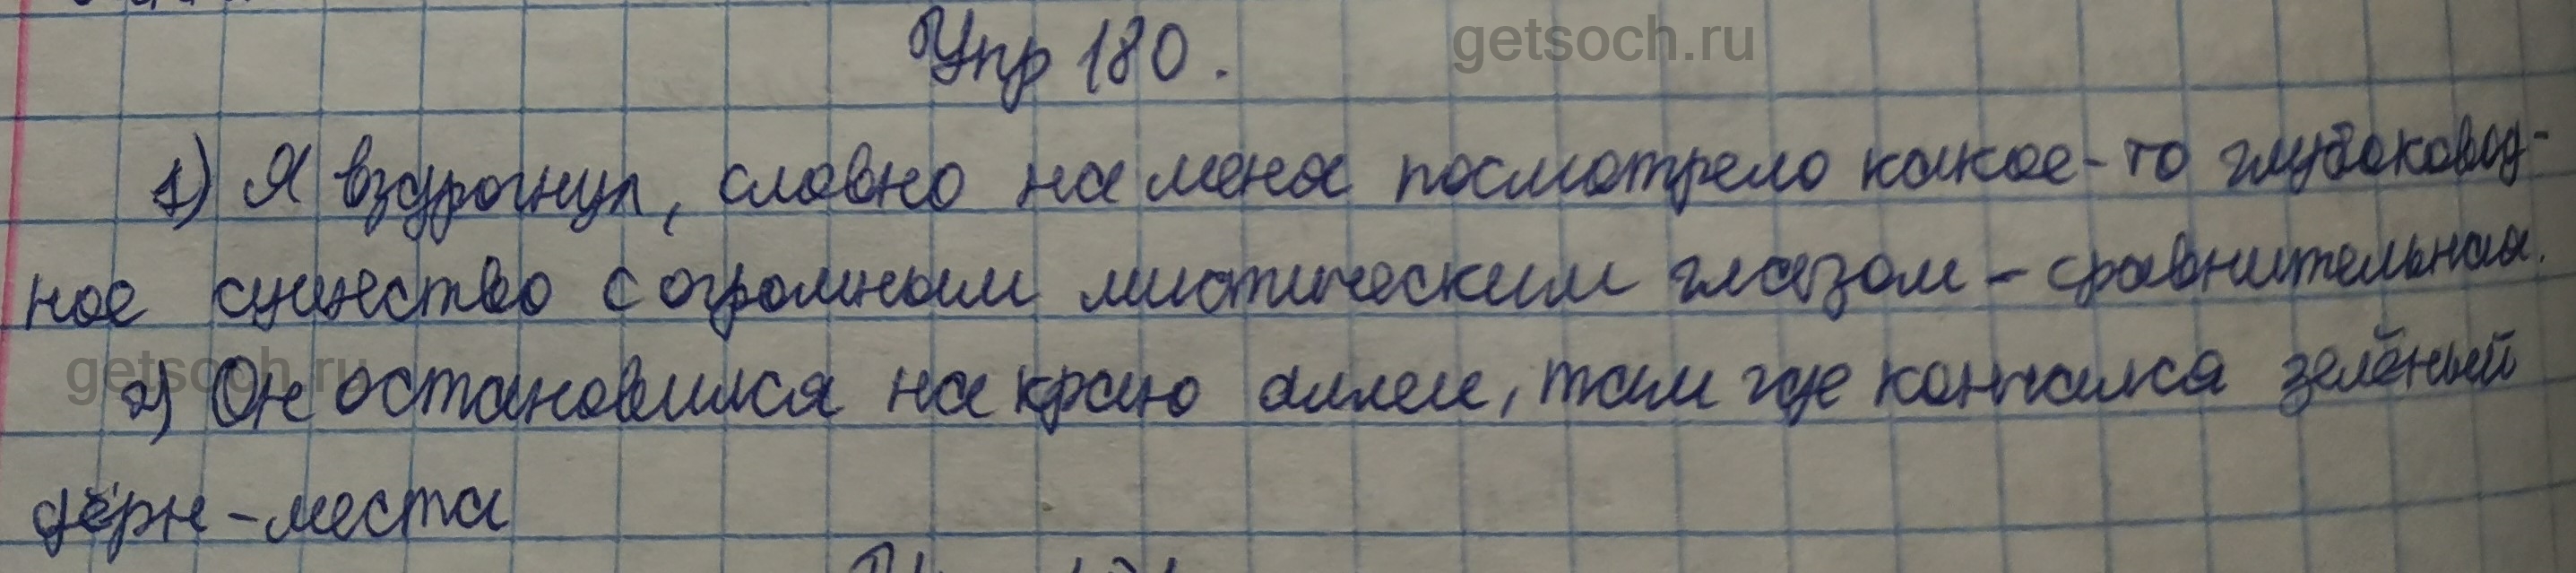 Упр 180.
getsoch.ru
1) Я вздрогнул, словно на меня посмотрело какое-то глубоковод-
ное существо с огромным мистическим глазом - сравнительная.
getsoch.ru
2) Он остановился на краю аллеи, там где кончался зелёный
дёрн - места